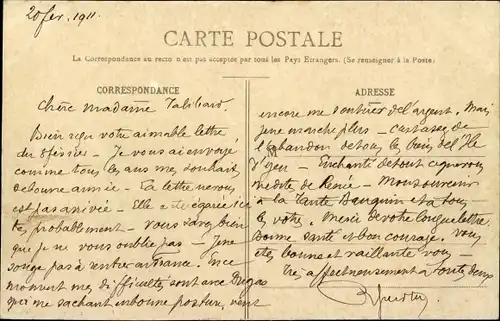 20 fer. 1911.
CARTE POSTALE
La Correspondance au recto n'est pas acceptée par tous les Pays Etrangers. (Se renseigner à la Poste)
CORRESPONDANCE
Chère Madame Talibard.
Bien reçu votre aimable lettre
du - Je vous ai envoyé
comme tous les ans mes souhaits
de bonne année - La lettre ne vous
est pas arrivée - Elle a été égarée ici
probablement - vous savez bien
que je ne vous oublie pas - Je ne
songe pas à rentrer en France. En ce
moment mes difficultés sont avec
qui me sachant en bonne posture, veut
ADRESSE
encore me soutirer de l'argent. Mais
je ne marche plus -
l'abandon de tous les biens de l'Ile
d'Yeu - Enchanté de tout ce que vous
me dites de Renée - Mon souvenir
à la Tante et à tous
les votres. Merci de votre longue lettre
Bonne santé et bon courage. Vous
etes bonne et vaillante vous -
Très affectueusement à toutes deux